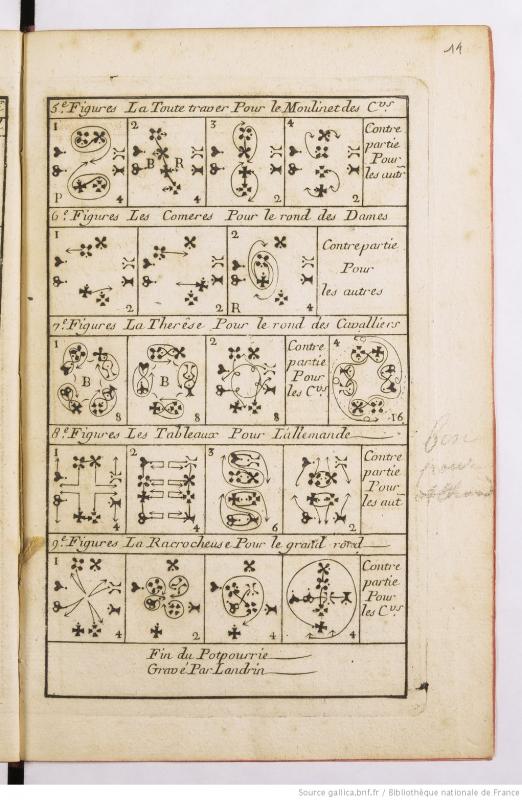 14
5.e Figures La Toute traver Pour le Moulinet des C.vs
1 2 3 4
Contre
partie
Pour
les autr
B R
P 4 2 4 4
6.e Figures Les Comeres Pour le rond des Dames
1 2 2
Contre partie
Pour
les autres
2 2 R 4
7.e Figures La Therêse Pour le rond des Cavalliers
1 2 4
Contre
partie
Pour
les C.vs
B B
8 8 8 16
8.e Figures Les Tableaux Pour L'allemande
1 2 3
Contre
partie
Pour
les aut
4 4 6 2
9.e Figures La Racrocheuse Pour le grand rond
1
Contre
partie
Pour
les C.vs
4 2 4 4
Fin du Potpourrie
Gravé Par Landrin
bon
pour
Source gallica.bnf.fr / Bibliothèque nationale de France